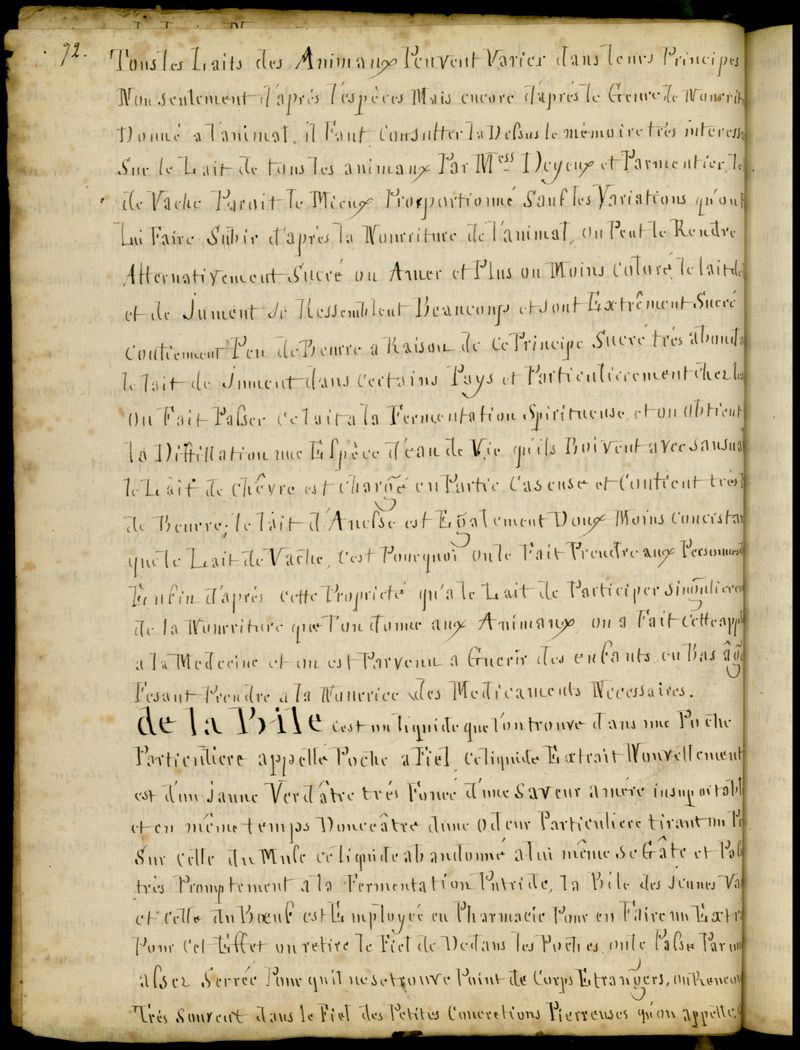 92.
Tous les Laits des Animaux Peuvent Varier dans leurs Principes
Non seulement d'après l'espèces Mais encore d'après le Genre de Nourrit
Donné a l'animal, il Faut Consulter la Dessus le mémoire très interess
Sur le Lait de tous les animaux Par Mess Deyeux et Parmentier, le
de Vache Paroit le Mieux Proportionné Sauf les Variations qu'on
Lui Faire Subir d'après la Nourriture de l'animal, on Peut le Rendre
Alternativement Sucré ou Amer et Plus ou Moins Coloré, le lait de
et de Jument se Ressemblent Beaucoup et sont Extrêment Sucré
Contiennent Peu de Beurre a Raison de ce Principe Sucré très abonda
le lait de Jument dans Certains Pays et Particulierement chez les
On Fait Passer ce lait a la Fermentation Spiritueuse, et on obtient
la Distillation une Espèce d'eau de Vie qu'ils Boivent avec sensual
le Lait de Chêvre est chargé en Partie Caseuse et Contient très
de Beurre, le lait d'Anesse est Egalement Doux Moins Concrista
que le Lait de Vache, c'est Pourquoi on le Fait Prendre aux Personnes
Enfin d'après cette Propriété qu'a le Lait de Participer Singuliere
de la Nourriture que l'on donne aux Animaux, on a Fait cette appli
a la Medecine et on est Parvenu a Guerir des enfants en Bas âge
Fesant Prendre a la Nourrice des Medicaments Necessaires.
de la Bile c'est un liquide que l'on trouve dans une Poche
Particuliere appellé Poche a Fiel, ce liquide Extrait Nouvellement
est d'un Jaune Verdâtre très Foncé d'une Saveur amère insuportabl
et en même temps Douceâtre d'une Odeur Particuliere tirant un Pe
Sur Celle du Musc ce liquide abandonné a lui même se Gâte et Pas
très Promptement a la Fermentation Putride, la Bile des Jeunes Va
et celle du Bœuf est Employée en Pharmacie Pour en Faire un Extr
Pour Cet Effet on retire le Fiel de Dedans les Poches, on le Passe Par un
assez Serrée Pour qu'il ne se trouve Point de Corps Etrangers, on Rencon
Très Souvent dans le Fiel des Petites Concretions Pierreuses qu'on appelle,